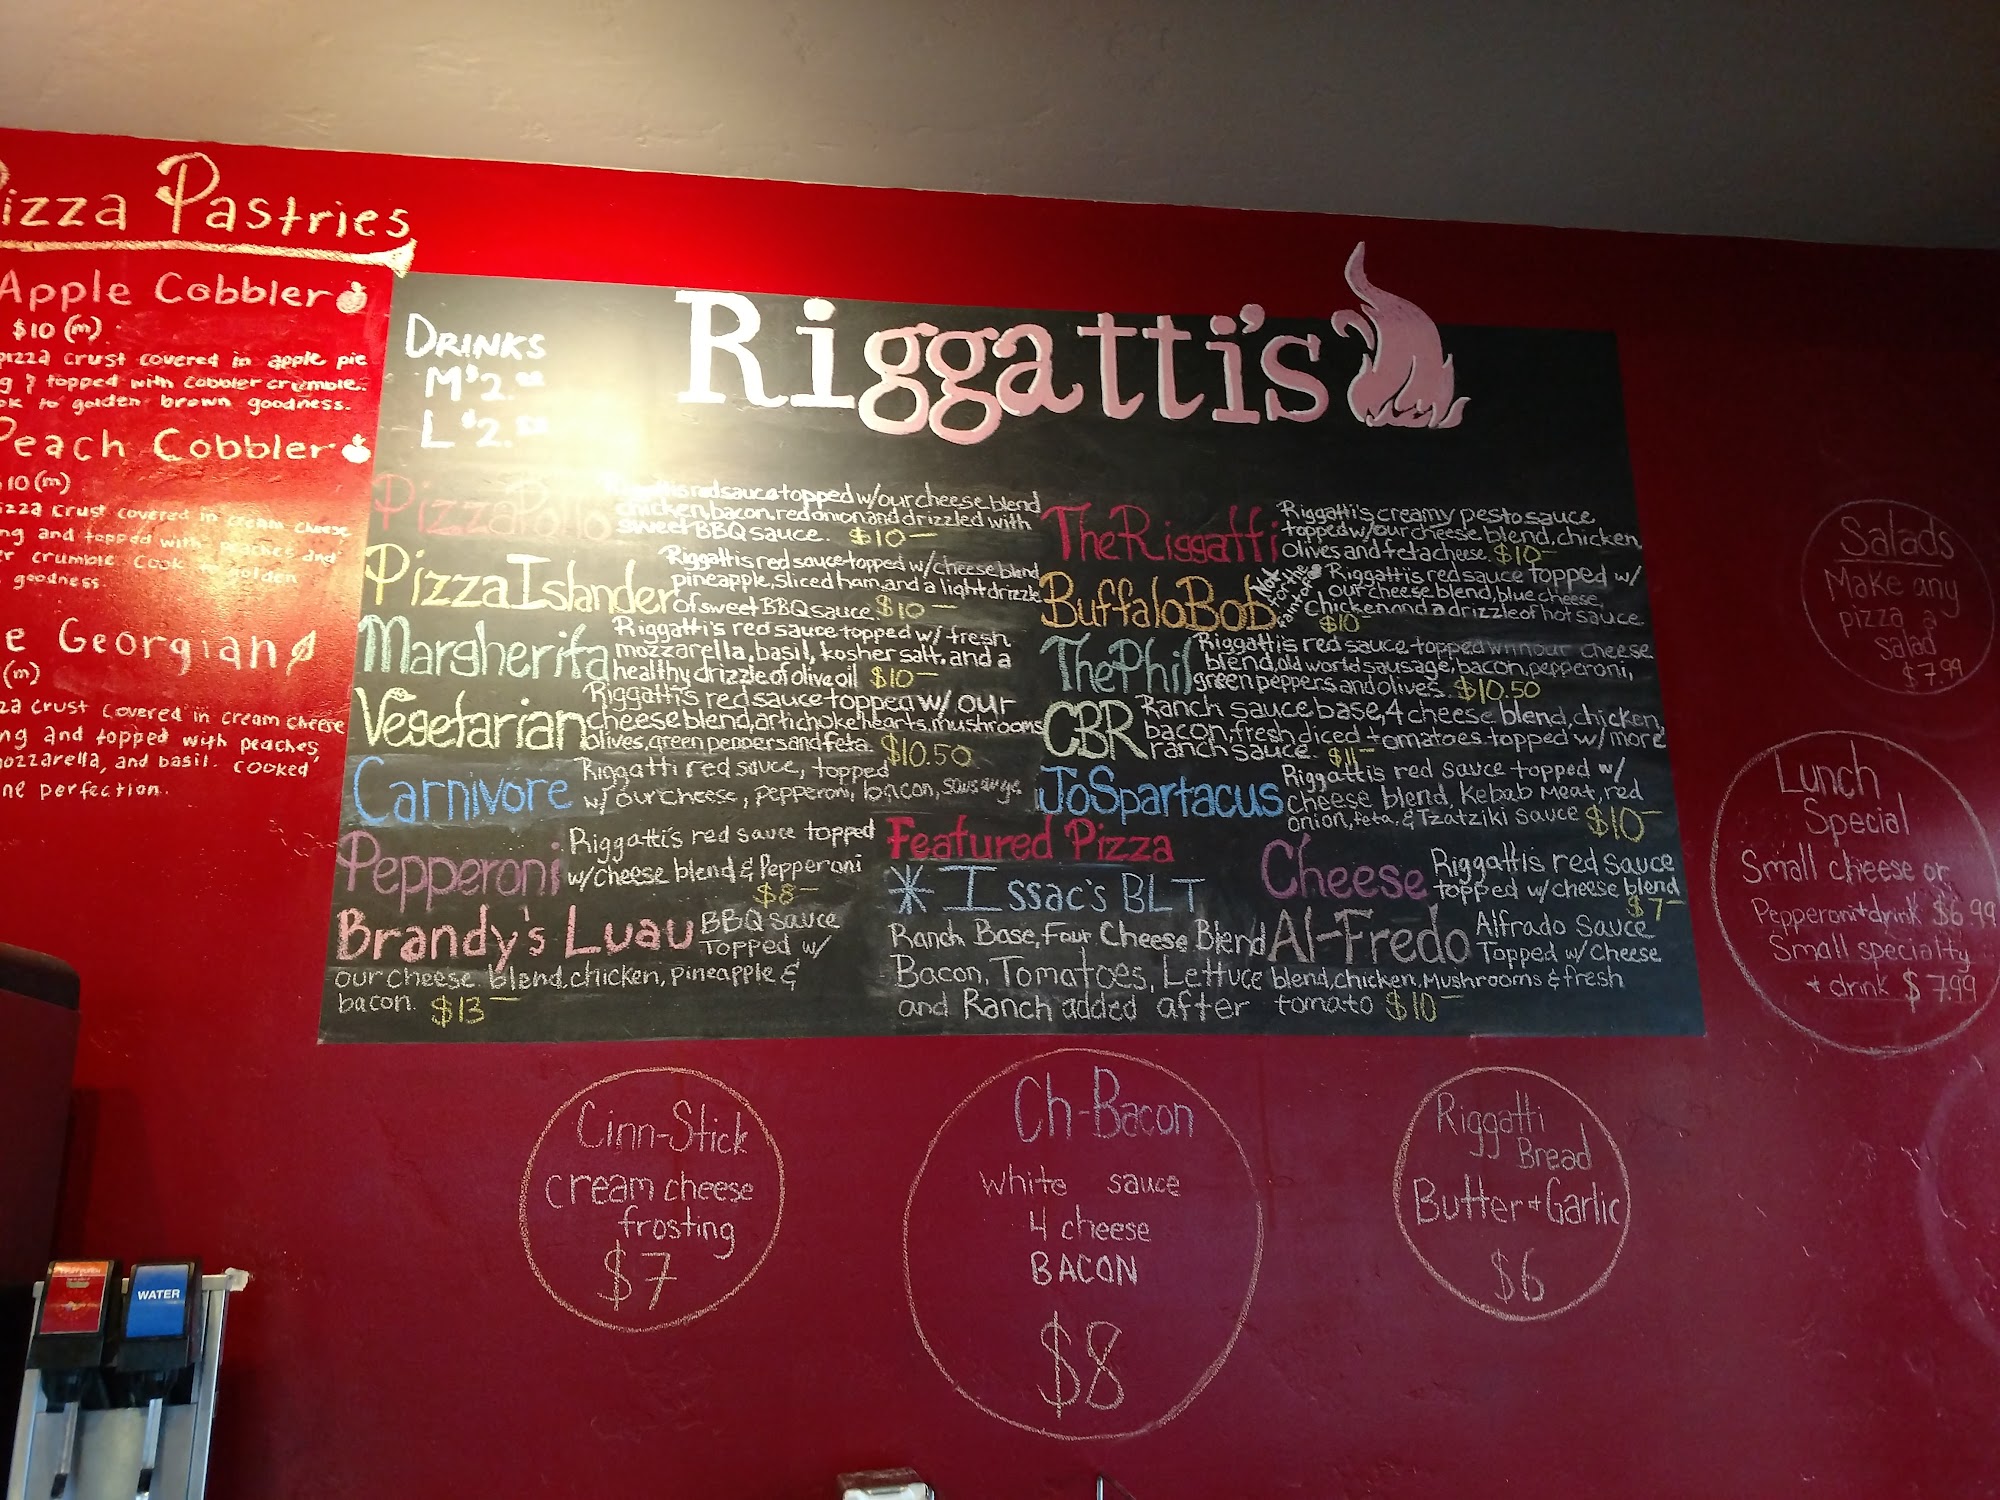 Pizza Pastries
Apple Cobbler
$10 (m)
pizza crust covered in apple pie
topped with cobbler crumble.
to golden brown goodness.
Peach Cobbler
$10 (m)
pizza crust covered in cream cheese
and topped with peaches and
crumble Cook to golden
goodness.
Georgian
(m)
crust covered in cream cheese
and topped with peaches,
mozzarella, and basil. cooked
perfection.
DRINKS
M $2.00
L $2.50
Riggatti's
Pizza Pollo
Riggatti's red sauce topped w/ our cheese blend
chicken, bacon, red onion and drizzled with
sweet BBQ sauce. $10—
Pizza Islander
Riggattis red sauce topped w/ cheese blend
pineapple, sliced ham, and a light drizzle
of sweet BBQ sauce. $10—
Margherita
Riggatti's red sauce topped w/ fresh
mozzarella, basil, kosher salt, and a
healthy drizzle of olive oil $10—
Vegetarian
Riggatti's red sauce topped w/ our
cheese blend, artichoke hearts, mushrooms
olives, green peppers and feta. $10.50
Carnivore
Riggatti red sauce, topped
w/ our cheese, pepperoni, bacon, sausauge
Pepperoni
Riggatti's red sauce topped
w/ cheese blend & Pepperoni
$8—
Brandy's Luau
BBQ sauce
Topped w/
our cheese blend, chicken, pineapple &
bacon. $13—
The Riggatti
Riggatti's creamy pesto sauce
topped w/ our cheese blend, chicken,
olives and feta cheese. $10—
Buffalo Bob
Riggatti's red sauce topped w/
our cheese blend, blue cheese,
chicken and a drizzle of hot sauce.
$10—
The Phil
Riggatti's red sauce topped with our cheese
blend, old world sausage, bacon, pepperoni,
green peppers and olives. $10.50
CBR
Ranch sauce base, 4 cheese blend, chicken,
bacon, fresh diced tomatoes topped w/ more
ranch sauce. $11—
JoSpartacus
Riggatti's red sauce topped w/
cheese blend, Kebab Meat, red
onion, feta, & Tzatziki sauce $10—
Featured Pizza
Issac's BLT
Ranch Base, Four Cheese Blend
Bacon, Tomatoes, Lettuce
and Ranch added after
Cheese
Riggatti's red sauce
topped w/ cheese blend
$7—
Al-Fredo
Alfrado Sauce
Topped w/ Cheese
blend, chicken, Mushrooms & fresh
tomato $10—
Salads
Make any
pizza a
salad
$7.99
Lunch
Special
Small cheese or
Pepperoni + drink $6.99
Small specialty
+ drink $7.99
Cinn-Stick
cream cheese
frosting
$7
Ch-Bacon
white sauce
4 cheese
BACON
$8
Riggatti
Bread
Butter + Garlic
$6
WATER